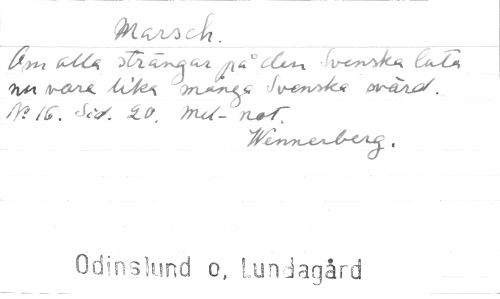 Marsch.
Om alla strängar på den Svenska luta
nu vore lika många Svenska svärd.
No 16. Sid. 20. Mel- not.
Wennerberg.
Odinslund o, Lundagård